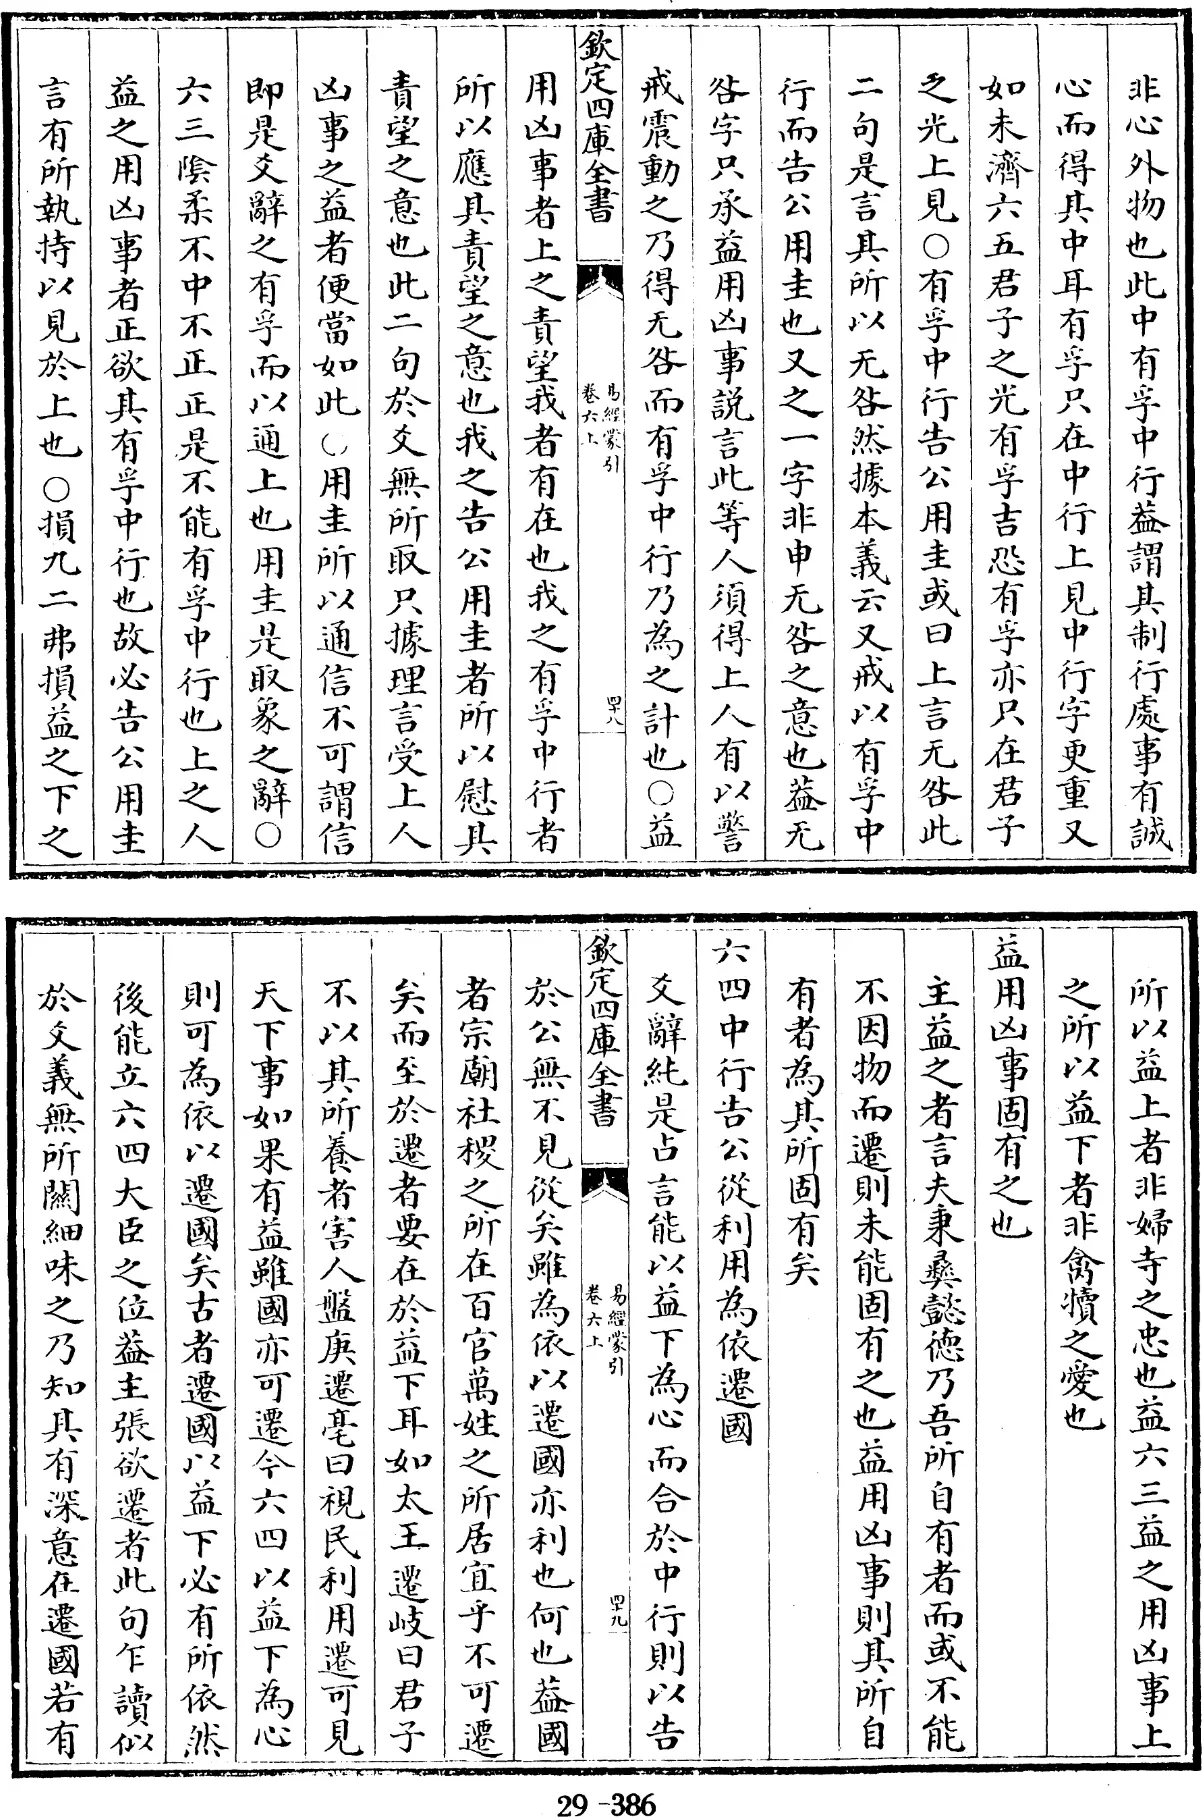 非心外物也此中有孚中行葢謂其制行處事有誠
心而得其中耳有孚只在中行上見中行字更重又
如未濟六五君子之光有孚吉恐有孚亦只在君子
之光上見○有孚中行告公用圭或曰上言无咎此
二句是言其所以无咎然據本義云又戒以有孚中
行而告公用圭也又之一字非申无咎之意也葢无
咎字只承益用凶事説言此等人須得上人有以警
戒震動之乃得无咎而有孚中行乃為之計也○益
欽定四庫全書
易經蒙引
卷六上
四十八
用凶事者上之責望我者有在也我之有孚中行者
所以應其責望之意也我之告公用圭者所以慰其
責望之意也此二句於爻無所取只據理言受上人
凶事之益者便當如此○用圭所以通信不可謂信
即是爻辭之有孚而以通上也用圭是取象之辭○
六三陰柔不中不正正是不能有孚中行也上之人
益之用凶事者正欲其有孚中行也故必告公用圭
言有所執持以見於上也○損九二弗損益之下之
所以益上者非婦寺之忠也益六三益之用凶事上
之所以益下者非禽犢之愛也
益用凶事固有之也
主益之者言夫秉彛懿德乃吾所自有者而或不能
不因物而遷則未能固有之也益用凶事則其所自
有者為其所固有矣
六四中行告公從利用為依遷國
爻辭純是占言能以益下為心而合於中行則以告
欽定四庫全書
易經蒙引
卷六上
四十九
於公無不見從矣雖為依以遷國亦利也何也葢國
者宗廟社稷之所在百官萬姓之所居宜乎不可遷
矣而至於遷者要在於益下耳如太王遷岐曰君子
不以其所養者害人盤庚遷亳曰視民利用遷可見
天下事如果有益雖國亦可遷今六四以益下為心
則可為依以遷國矣古者遷國以益下必有所依然
後能立六四大臣之位葢主張欲遷者此句乍讀似
於文義無所關細味之乃知其有深意在遷國若有
29-386